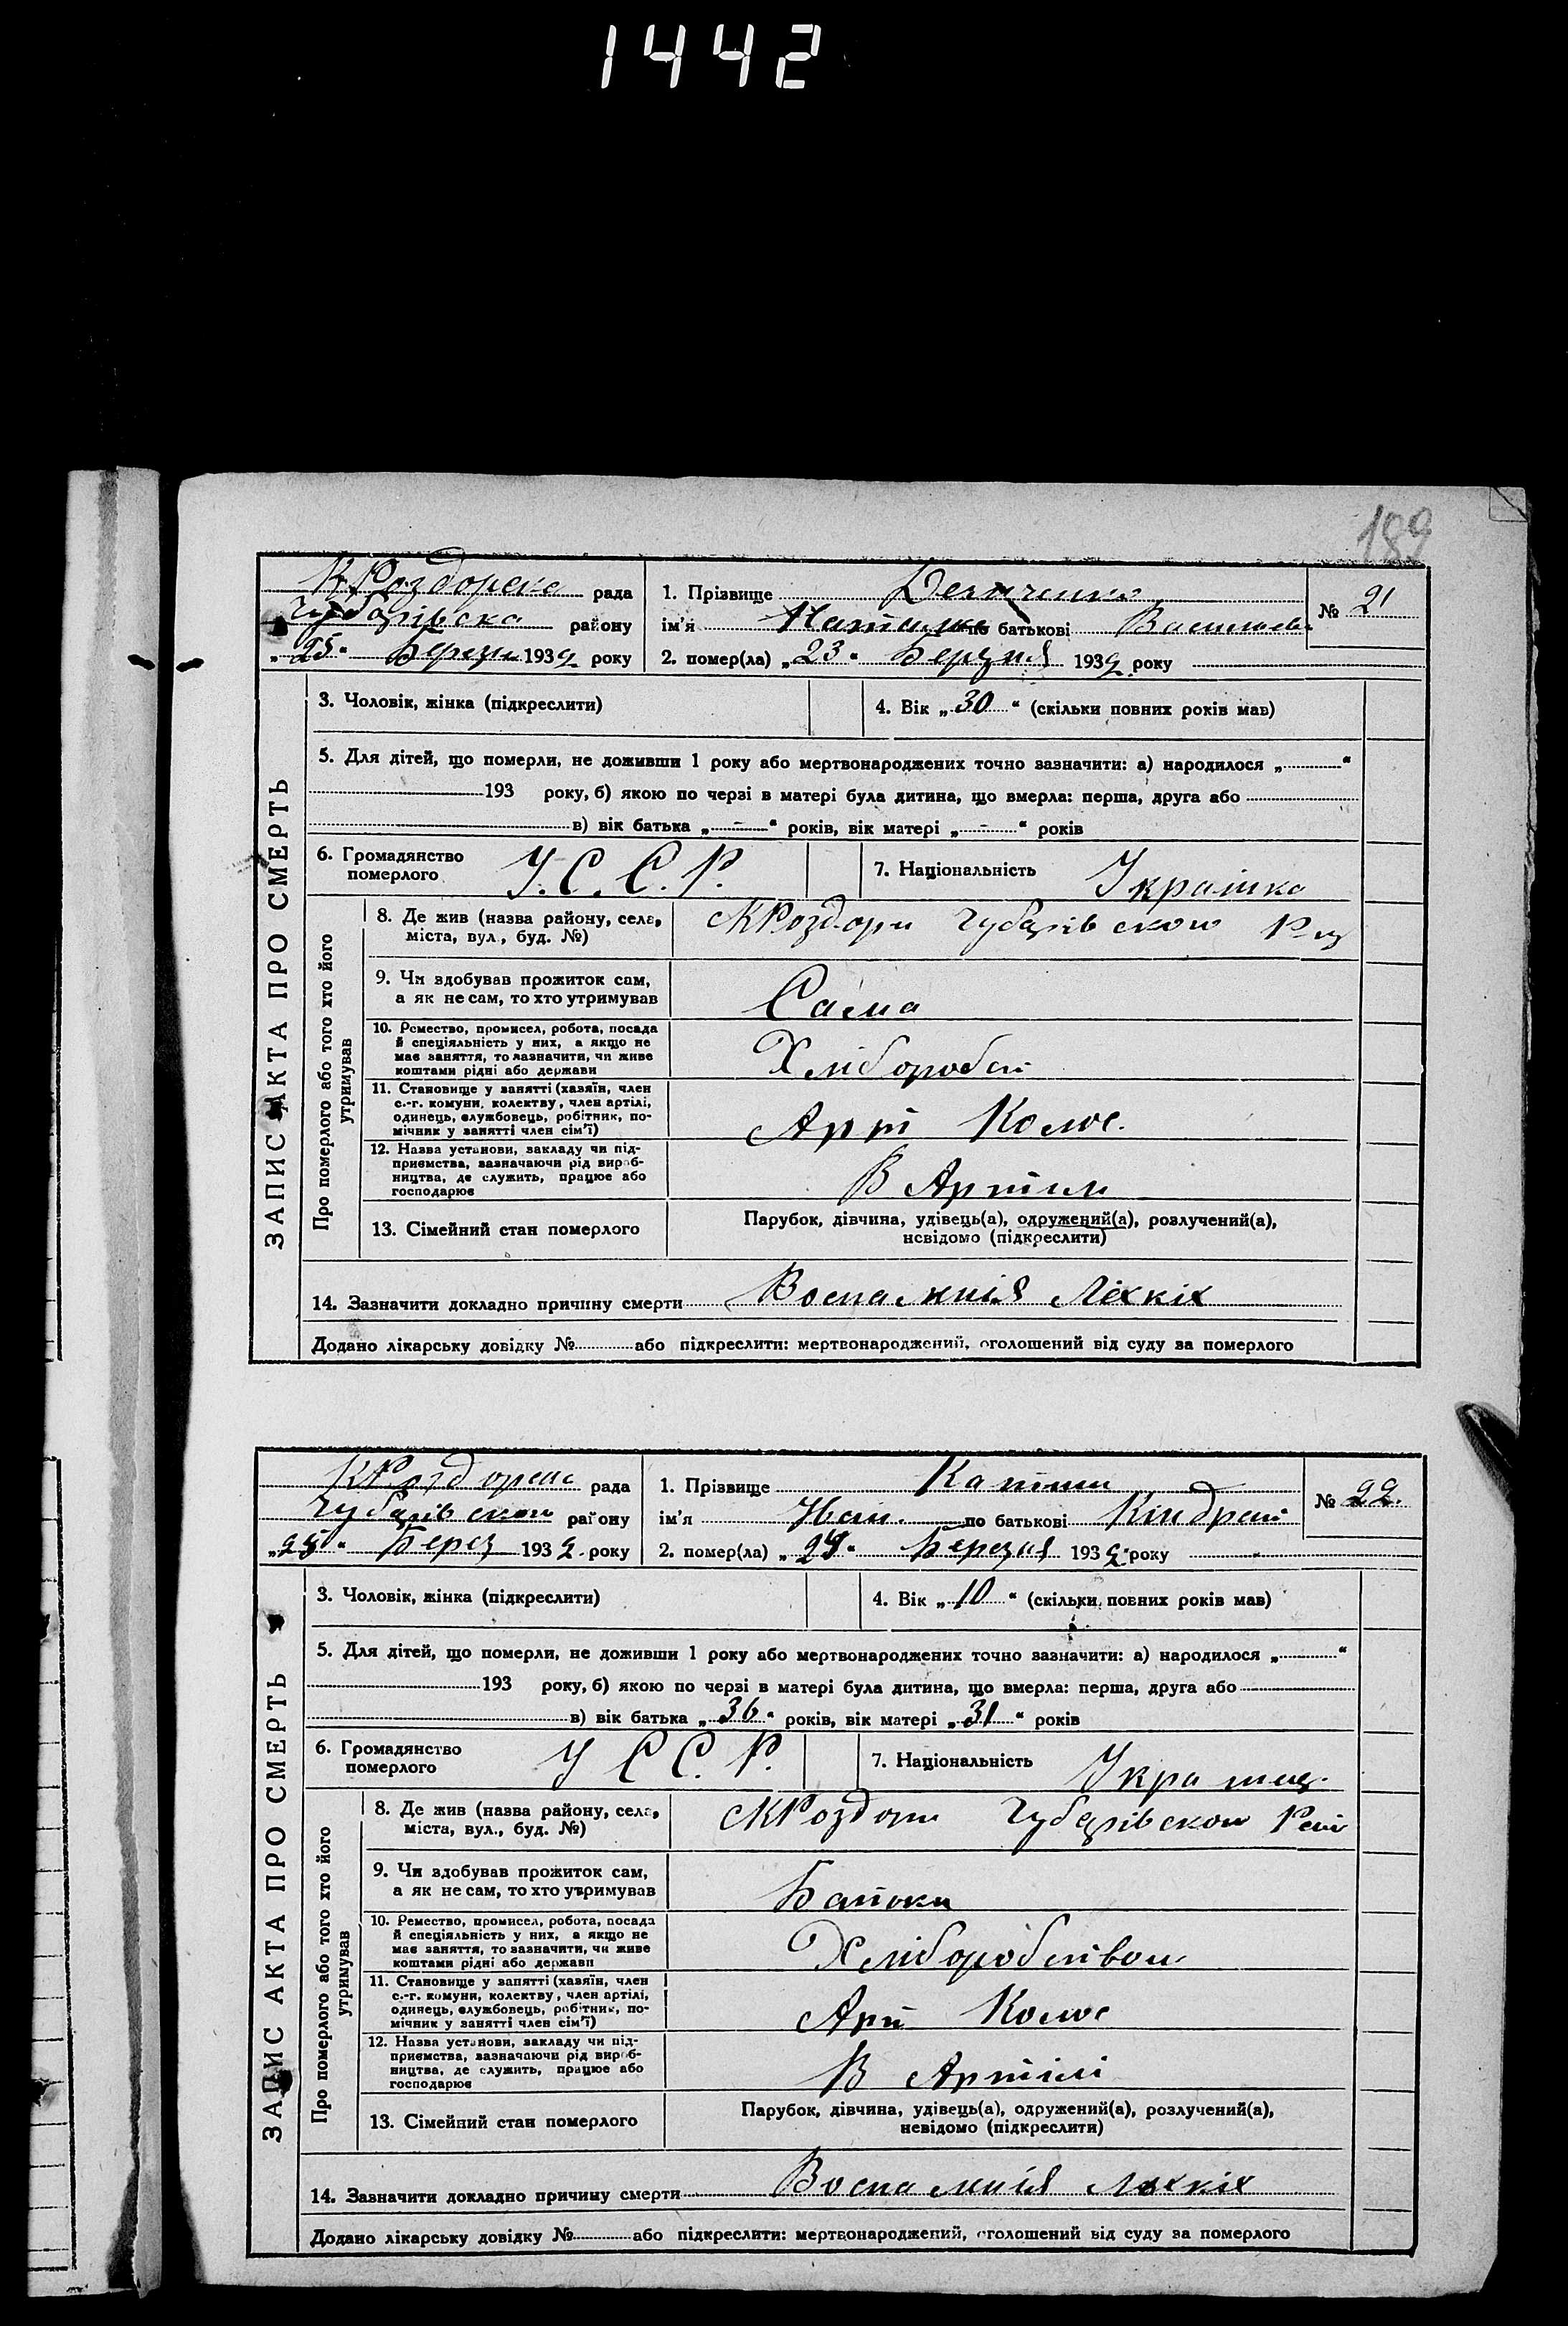 1442
189
К Роздорска рада
Чубарівска району
„25" Березн 1932 року
1. Прізвище
ім'я Наталка по батькові Васильев
2. помер(ла) „23" Березня 1932 року
№ 21
ЗАПИС АКТА ПРО СМЕРТЬ
3. Чоловік, жінка (підкреслити)
4. Вік „30" (скільки повних років мав)
5. Для дітей, що померли, не доживши 1 року або мертвонароджених точно зазначити: а) народилося „ "
193 року, б) якою по черзі в матері була дитина, що вмерла: перша, друга або
в) вік батька „ - " років, вік матері „ - " років
6. Громадянство
померлого У.С.С.Р.
7. Національність Украінка
Про померлого або того хто його
утримував
8. Де жив (назва району, села,
міста, вул., буд. №) КРоздори Чубарівскои
9. Чи здобував прожиток сам,
а як не сам, то хто утримував Сама
10. Ремество, промисел, робота, посада
й спеціяльність у них, а якщо не
має заняття, то зазначити, чи живе
коштами рідні або держави
11. Становище у занятті (хазяїн, член
с.-г. комуни, колективу, член артілі,
одинець, службовець, робітник, по-
мічник у занятті член сім'ї) Арт
12. Назва установи, закладу чи під-
приємства, зазначаючи рід вироб-
ництва, де служить, працює або
господарює В Артили
13. Сімейний стан померлого
Парубок, дівчина, удівець(а), одружений(а), розлучений(а),
невідомо (підкреслити)
14. Зазначити докладно причину смерти Воспалмнія Лёхкіх
Додано лікарську довідку № або підкреслити: мертвонароджений, оголошений від суду за померлого
КРоздорска рада
Чубарівскои району
„25" Берез 1932 року
1. Прізвище
ім'я Иван. по батькові Кіндрат
2. помер(ла) „24" Березня 1932 року
№ 22.
ЗАПИС АКТА ПРО СМЕРТЬ
3. Чоловік, жінка (підкреслити)
4. Вік „10" (скільки повних років мав)
5. Для дітей, що померли, не доживши 1 року або мертвонароджених точно зазначити: а) народилося „ "
193 року, б) якою по черзі в матері була дитина, що вмерла: перша, друга або
в) вік батька „36" років, вік матері „31" років
6. Громадянство
померлого У С С. Р.
7. Національність
Про померлого або того хто його
утримував
8. Де жив (назва району, села,
міста, вул., буд. №) КРоздори Чубарівскои
9. Чи здобував прожиток сам,
а як не сам, то хто утримував Батьки
10. Ремество, промисел, робота, посада
й спеціяльність у них, а якщо не
має заняття, то зазначити, чи живе
коштами рідні або держави Хліборобством
11. Становище у занятті (хазяїн, член
с.-г. комуни, колективу, член артілі,
одинець, службовець, робітник, по-
мічник у занятті член сім'ї) Арт
12. Назва установи, закладу чи під-
приємства, зазначаючи рід вироб-
ництва, де служить, працює або
господарює В Артілі
13. Сімейний стан померлого
Парубок, дівчина, удівець(а), одружений(а), розлучений(а),
невідомо (підкреслити)
14. Зазначити докладно причину смерти
Додано лікарську довідку № або підкреслити: мертвонароджений, оголошений від суду за померлого